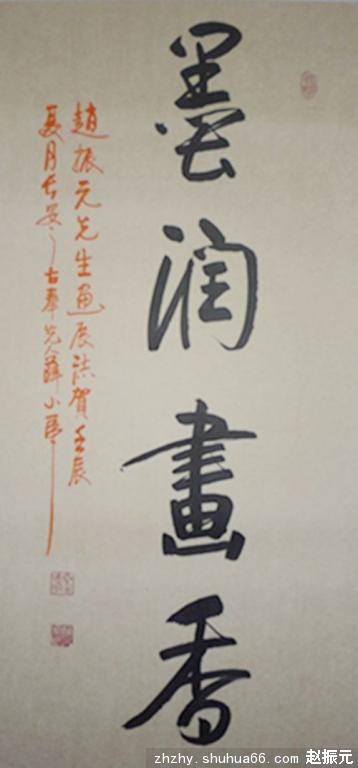 墨润畫香
趙振元先生画展誌賀壬辰
夏月长安古奉先薛小
zhzhy.shuhua66.com 赵振元